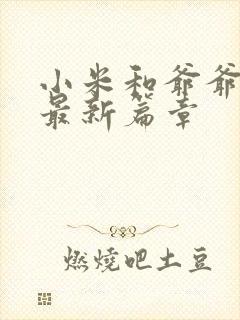 小米和爷爷
最新篇章
燃燒吧土豆